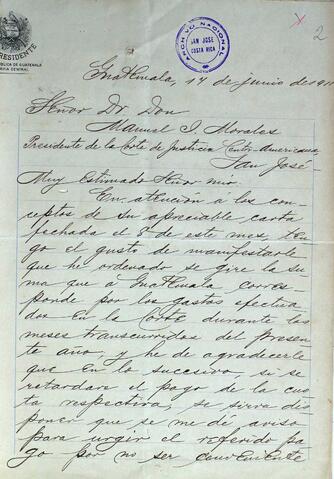 PRESIDENTE
REPUBLICA DE GUATEMALA
AMERICA CENTRAL
ARCHIVO NACIONAL
SAN JOSE
COSTA RICA
2
Guatemala, 14 de junio de 191
Señor Dr. Don
Manuel I. Morales
Presidente de la Corte de Justicia Centro-Americana,
San José-
Muy Estimado Señor mío:
En atención a los con-
ceptos de su apreciable carta
fechada el 3 de este mes, ten-
go el gusto de manifestarle
que he ordenado se gire la su-
ma que á Guatemala corres-
ponde por los gastos efectua
dos en la Corte durante los
meses transcurridos del presen-
te año; y he de agradecerle
que en lo sucesivo, si se
retardare el pago de la cuo
ta respectiva, se sirva dis-
poner que se me dé aviso
para urgir el referido pa
go por no ser conveniente